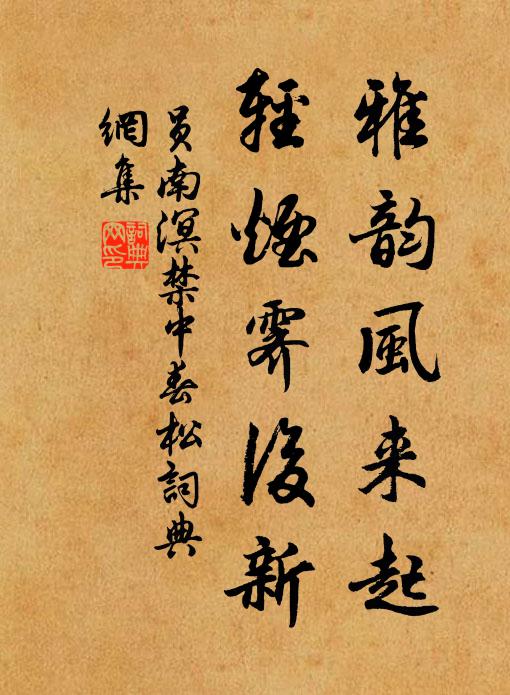 雅韵風来起
輕煙霽後新
員南溟禁中春松詞典
網集
詞典
网印